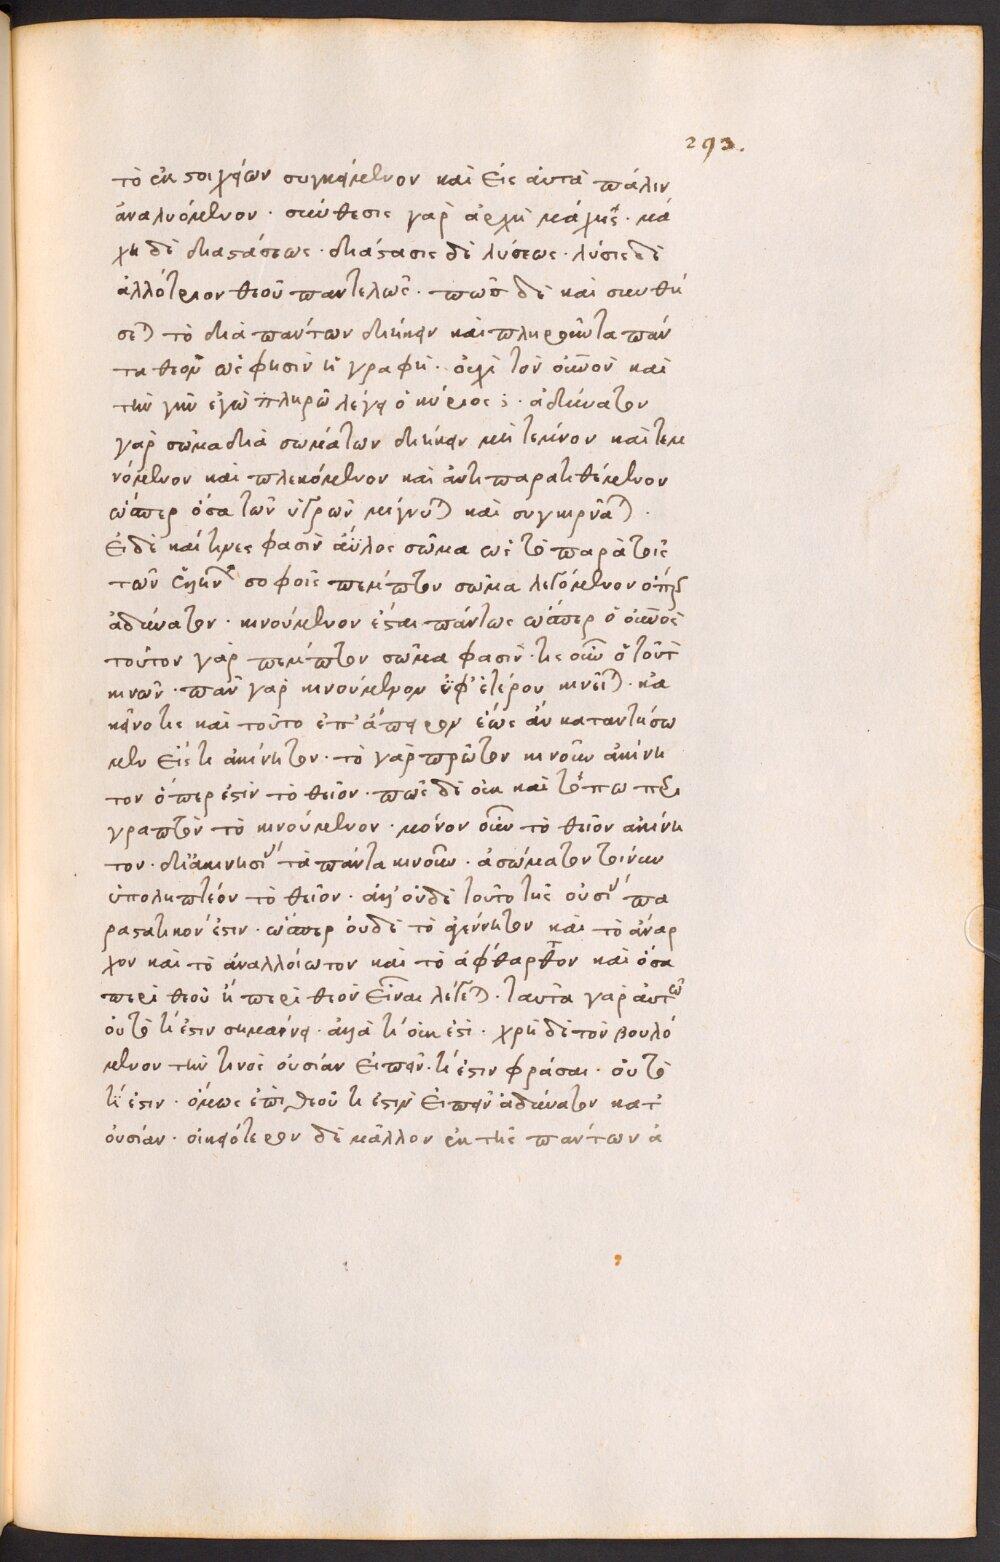 293.
τὸ ἐκ στοιχείων συγκείμενον καὶ εἰς αὐτὰ πάλιν
ἀναλυόμενον · σύνθεσις γὰρ ἀρχὴ μάχης · μά
χη δὲ διαστάσεως · διάστασις δὲ λύσεως · λύσις δὲ
ἀλλότριον θεοῦ παντελῶς · πῶς δὲ καὶ σωθή
σεται τὸ διὰ πάντων διήκειν καὶ πληροῦν τὰ πάν
τα θεὸν ὡς φησὶν ἡ γραφή · οὐχὶ τὸν οὐνὸν καὶ
τὴν γῆν ἐγὼ πληρῶ λέγει ὁ κύριος ; · ἀδύνατον
γὰρ σῶμα διὰ σωμάτων διήκειν μὴ τέμνον καὶ τεμ
νόμενον καὶ πλεκόμενον καὶ ἀντιπαρατιθέμενον
ὥσπερ ὅσα τῶν ὑγρῶν μίγνυται καὶ συγκιρνᾶται ·
εἰ δὲ καί τινες φασὶν ἄϋλος σῶμα ὡς τὸ παρὰ τοῖς
τῶν ἑλλήνων σοφοῖς πέμπτον σῶμα λεγόμενον ὅπερ
ἀδύνατον · κινούμενον ἔσται πάντως ὥσπερ ὁ οὐνός
τοῦτον γὰρ πέμπτον σῶμα φασίν · τίς οὖν ὁ τοῦτον
κινῶν · πᾶν γὰρ κινούμενον ὑφ' ἑτέρου κινεῖται · κἀ
κεῖνό τις καὶ τοῦτο ἐπ' ἄπειρον ἕως ἂν καταντήσω
μεν εἴς τι ἀκίνητον · τὸ γὰρ πρῶτον κινοῦν ἀκίνη
τον ὅπερ ἐστὶν τὸ θεῖον · πῶς δὲ οὐκ καὶ τόπω περι
γραπτὸν τὸ κινούμενον · μόνον οὖν τὸ θεῖον ἀκίνη
τον · δι' ἀκινησίας τὰ πάντα κινοῦν · ἀσώματον τοίνυν
ὑποληπτέον τὸ θεῖον · ἀλλ' οὐδὲ τοῦτο τῆς οὐσίας πα
ραστατικόν ἐστιν · ὥσπερ οὐδὲ τὸ ἀγέννητον καὶ τὸ ἄναρ
χον καὶ τὸ ἀναλλοίωτον καὶ τὸ ἄφθαρτον καὶ ὅσα
περὶ θεοῦ ἢ περὶ θεὸν εἶναι λέγεται · ταῦτα γὰρ αὐτῶ
οὐ τὸ τί ἐστιν σημαίνει · ἀλλὰ τί οὐκ ἔστι · χρὴ δὲ τὸν βουλό
μενον τὴν τινὸς οὐσίαν εἰπεῖν · τί ἐστιν φράσαι · οὐ τὸ
τί ἐστιν · ὅμως ἐπὶ θεοῦ τί ἐστιν εἰπεῖν ἀδύνατον κατ'
οὐσίαν · οἰκειότερον δὲ μᾶλλον ἐκ τῆς πάντων ἀ